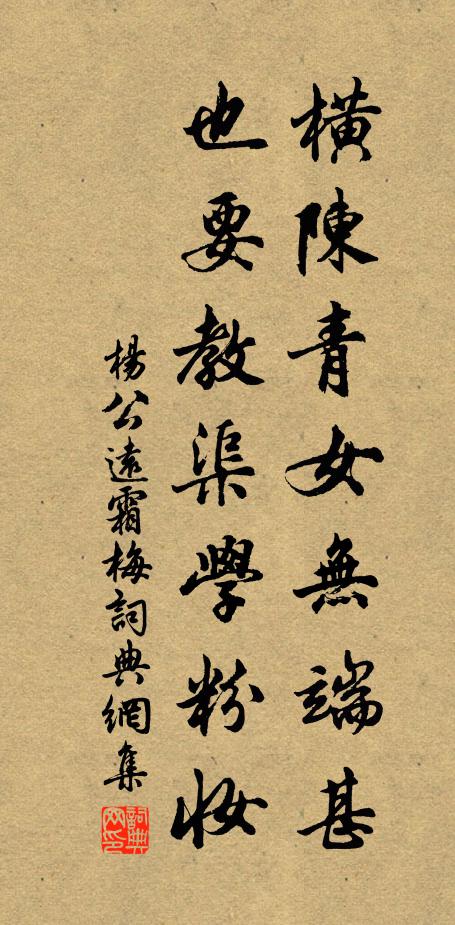 橫陳青女無端甚
也要教渠學粉妝
楊公遠霜梅詞典網集
詞典網印